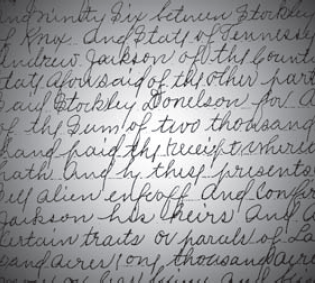 and ninety Six between Stockley
of Knox and State of Tennessee
Andrew Jackson of the Count
State aforesaid of the other part
Said Stockley Donelson for a
of the Sum of two thousand
hand paid the receipt where
hath and by these presents
Sell alien enfeoff and Confir
Jackson his heirs and a
certain traits or parcels of La
sand acres (one thousand acre